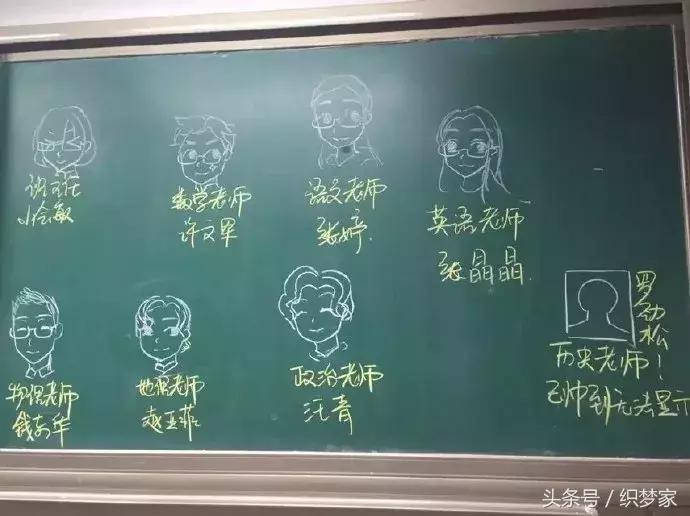 班主任
数学老师
许文军
语文老师
张婷.
英语老师
张晶晶.
物理老师
地理老师
赵亚菲
政治老师
汪青
罗劲松
历史老师!
已帅到无法显示
头条号 / 织梦家